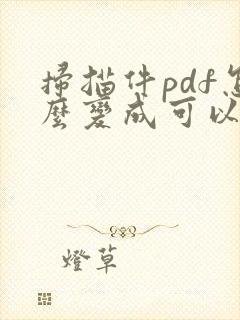 掃描件pdf怎
麼變成可以
燈草